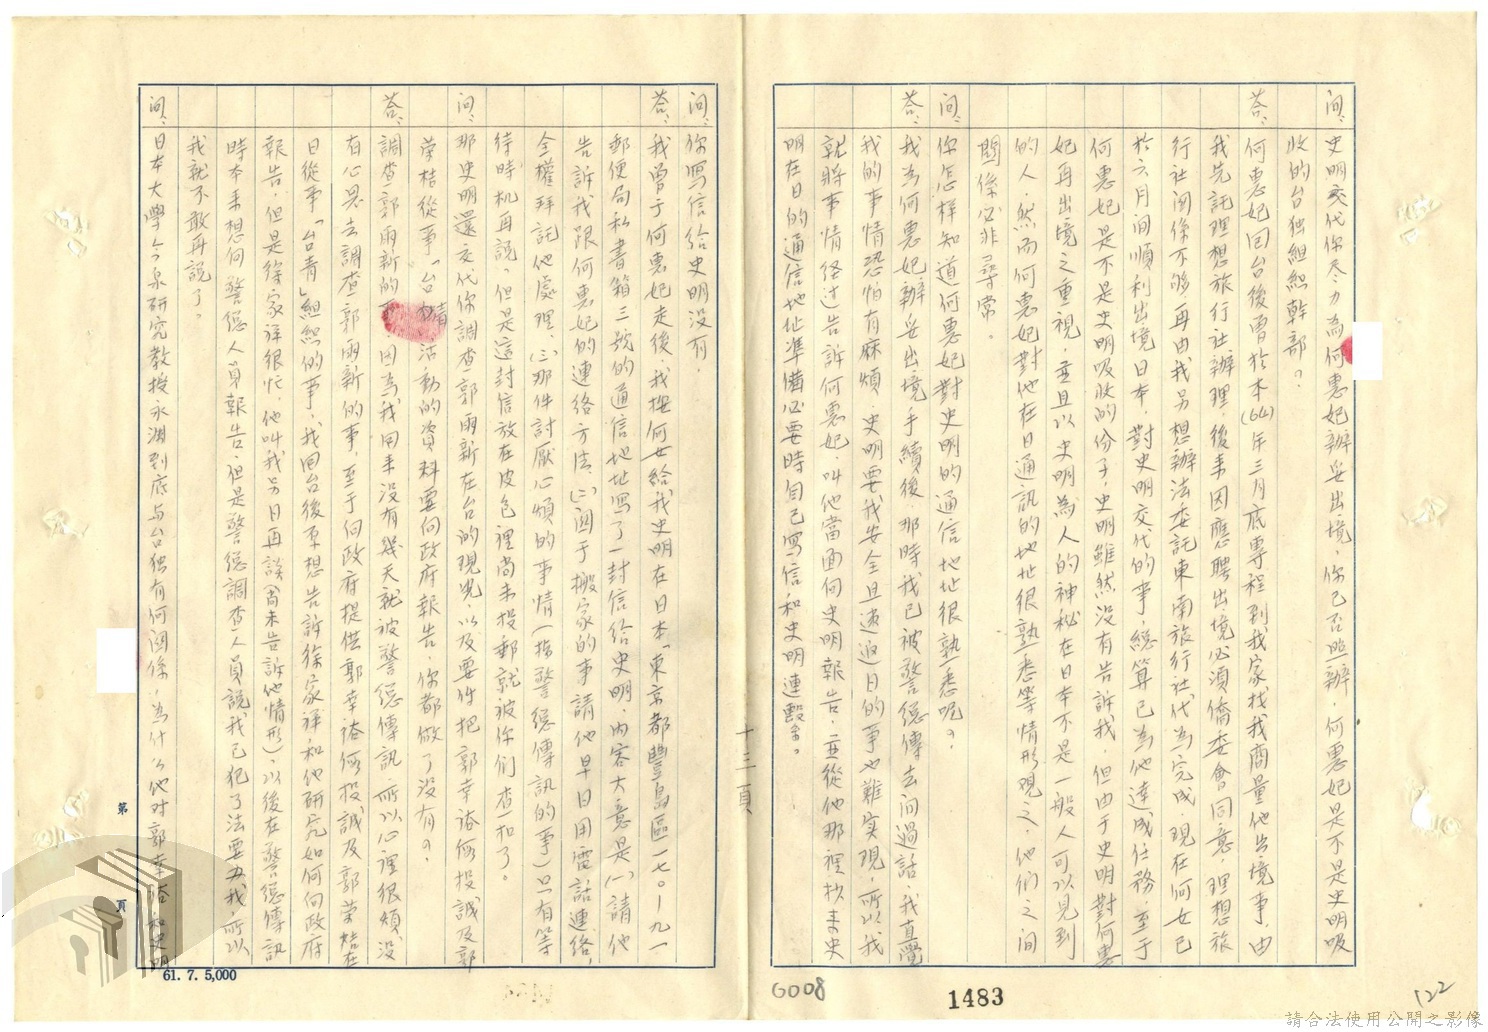 問：史明交代你尽力為何惠妃辦妥出境，你已否照辦，何惠妃是不是史明吸
收的台独組織幹部？
答：何惠妃回台後曾於本(64)年三月底專程到我家找我商量他出境事，由
我先託理想旅行社辦理，後來因應聘出境必須僑委會同意，理想旅
行社関係不够，再由我另想辦法委託東南旅行社代為完成，現在何女已
於六月间順利出境日本，對史明交代的事，總算已為他達成任務，至于
何惠妃是不是史明吸收的份子，史明雖然没有告訴我，但由于史明對何惠
妃再出境之重視，並且以史明為人的神秘在日本不是一般人可以見到
的人，然而何惠妃對他在日通訊的地址很熟悉等情形觀之，他們之间
関係必非尋常。
問：你怎样知道何惠妃對史明的通信地址很熟悉呢？
答：我為何惠妃辦妥出境手續後，那時我已被警總傳去问過話，我直覺
我的事情恐怕有麻煩，史明要我安全且速返日的事也難实現，所以我
就將事情经过告訴何惠妃，叫他當面向史明報告，並從他那裡抄來史
明在日的通信地址準備必要時自己寫信和史明連繫。
十三頁
問：你寫信給史明没有，
答：我曾于何惠妃走後，我按何女給我史明在日本「東京都豐島區一七〇－九一
郵便局私書箱三號的通信地址寫了一封信給史明，内容大意是(一)請他
告訴我跟何惠妃的連絡方法，(二)関于搬家的事請他早日用電話連絡，
全權拜託他處理，(三)那件討厭心煩的事情（指警總傳訊的事）只有等
待時机再說，但是這封信放在皮包裡尚未投郵就被你們查扣了。
問：那史明還交代你調查郭雨新在台的現況，以及要你把郭幸裕假投誠及郭
榮桔從事「台青」活動的資料要向政府報告，你都做了没有？
答：調查郭雨新的，因為我回來没有幾天就被警總傳訊，所以心裡很煩没
有心思去調查郭雨新的事，至于向政府提供郭幸裕假投誠及郭荣桔在
日從事「台青」組織的事，我回台後原想告訴徐家祥和他研究如何向政府
報告，但是徐家祥很忙，他叫我另日再談（尚未告訴他情形），以後在警總傳訊
時本來想向警總人員報告，但是警總調查人員說我已犯了法要办我，所以
我就不敢再說了。
問：日本大學今泉研究教授永渊到底与台独有何関係，為什么他对郭幸裕和史明
第
頁
61. 7. 5,000
G008
1483
122
請合法使用公開之影像